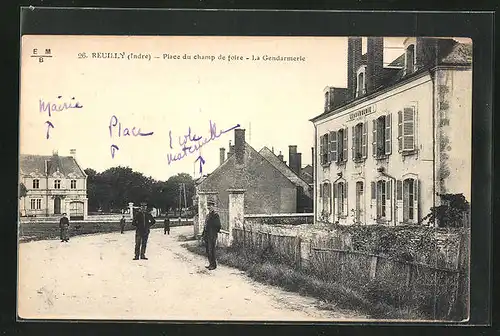 26. REUILLY (Indre) — Place du champ de foire - La Gendarmerie
E M
B
Mairie
Place
école
maternelle
GENDARMERIE